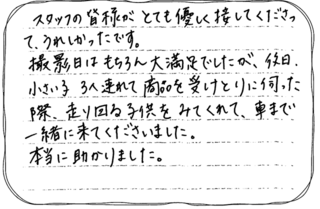 スタッフの皆様が とても優しく接してくださっ
て、うれしかったです。
撮影日はもちろん大満足でしたが、後日、
小さい子 3人連れて 商品を受けとりに伺った
際、走り回る子供をみてくれて、車まで
一緒に来てくださいました。
本当に助かりました。